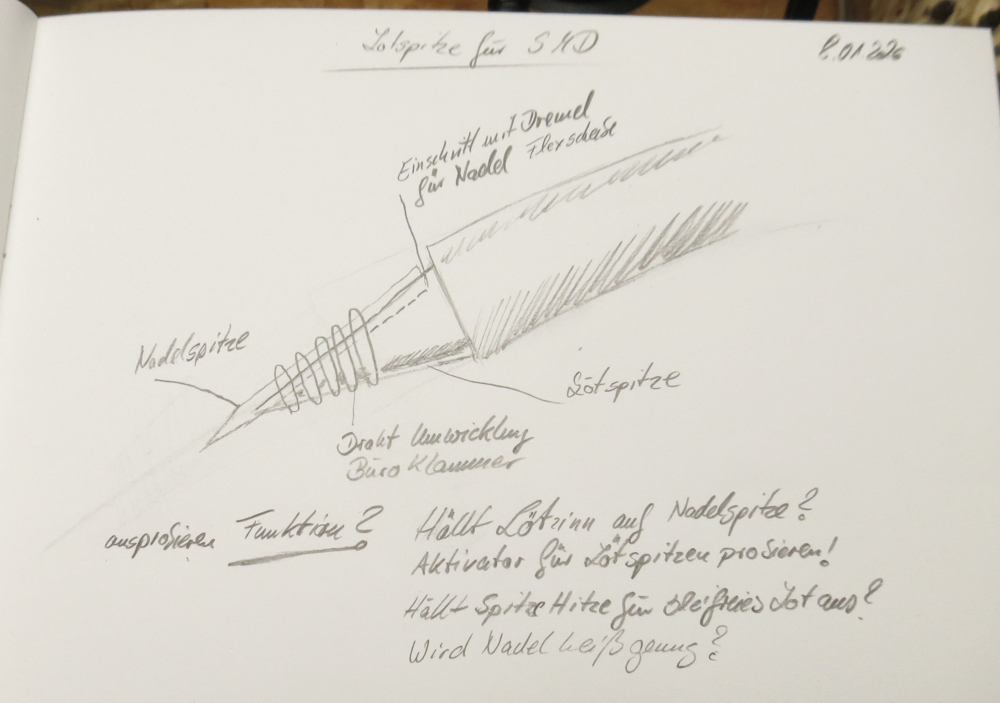 Lötspitze für SMD
8.01.226
Einschnitt mit Dremel
für Nadel Flexscheibe
Nadelspitze
Lötspitze
Draht Umwicklung
Büro Klammer
ausprobieren Funktion?
Hällt Lötzinn auf Nadelspitze?
Aktivator für Lötspitzen probieren!
Hällt Spitze Hitze für bleifreies Lot aus?
Wird Nadel heiß genug?